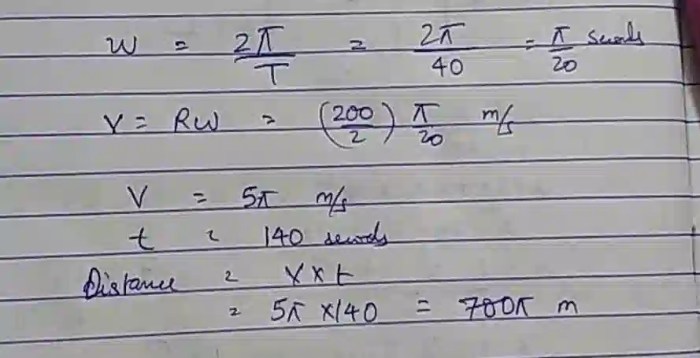 W = 2π/T = 2π/40 = π/20 seconds
V = RW = (200/2) π/20 m/s
V = 5π m/s
t = 140 seconds
Distance = V x t
= 5π x 140 = 700π m